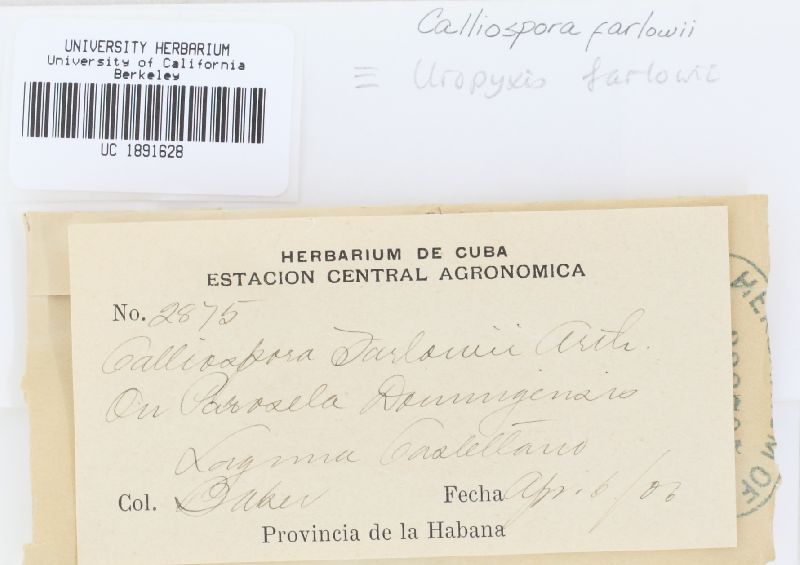 Calliospora farlowii
≡ Uropyxis farlowii
UNIVERSITY HERBARIUM
University of California
Berkeley
UC 1891628
HERBARIUM DE CUBA
ESTACION CENTRAL AGRONOMICA
No. 2875
Calliospora Farlowii Arth.
On Parosela Domingensis
Laguna Castellano
Col. Baker
Fecha Apr. 6/05
Provincia de la Habana
OF